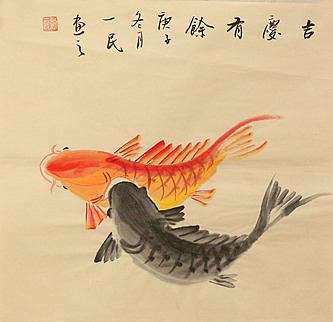 吉慶有餘
庚子
冬月
一民
画之